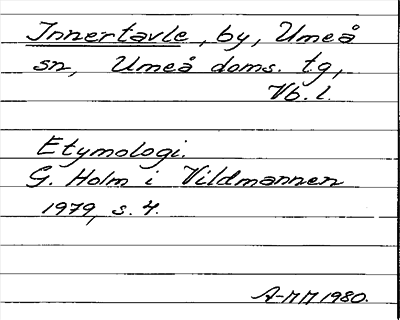 Innertavle, by, Umeå
sn, Umeå doms. tg,
Vb. l.
Etymologi.
G. Holm i Vildmannen
1979, s. 4.
A-MM 1980.